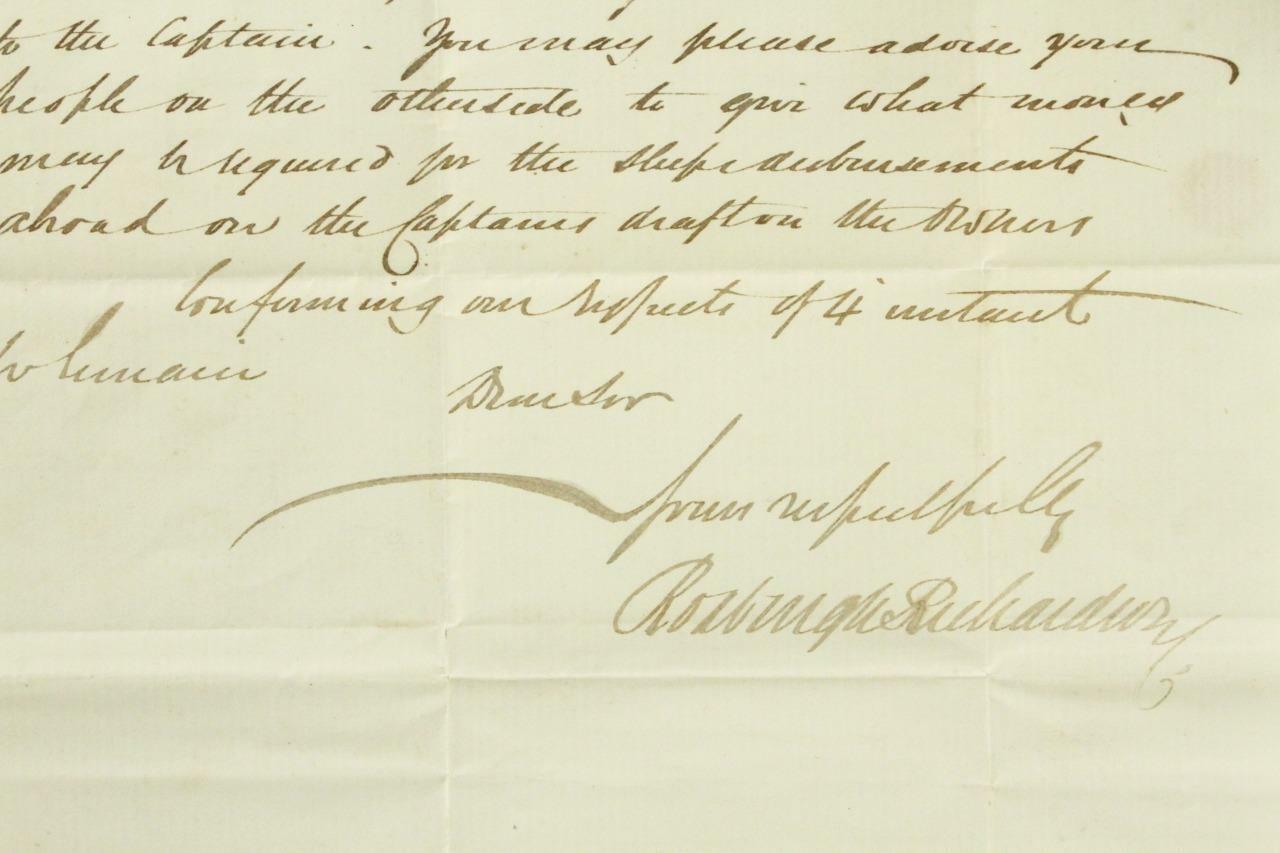 to the Captain. You may please advise your
people on the otherside to give what money
may be required for the ships disbursements
abroad on the Captains draft on the Owners
Confirming our respects of 4 instant
We remain
Dear Sir
Yours respectfully
Roxburgh Richardson